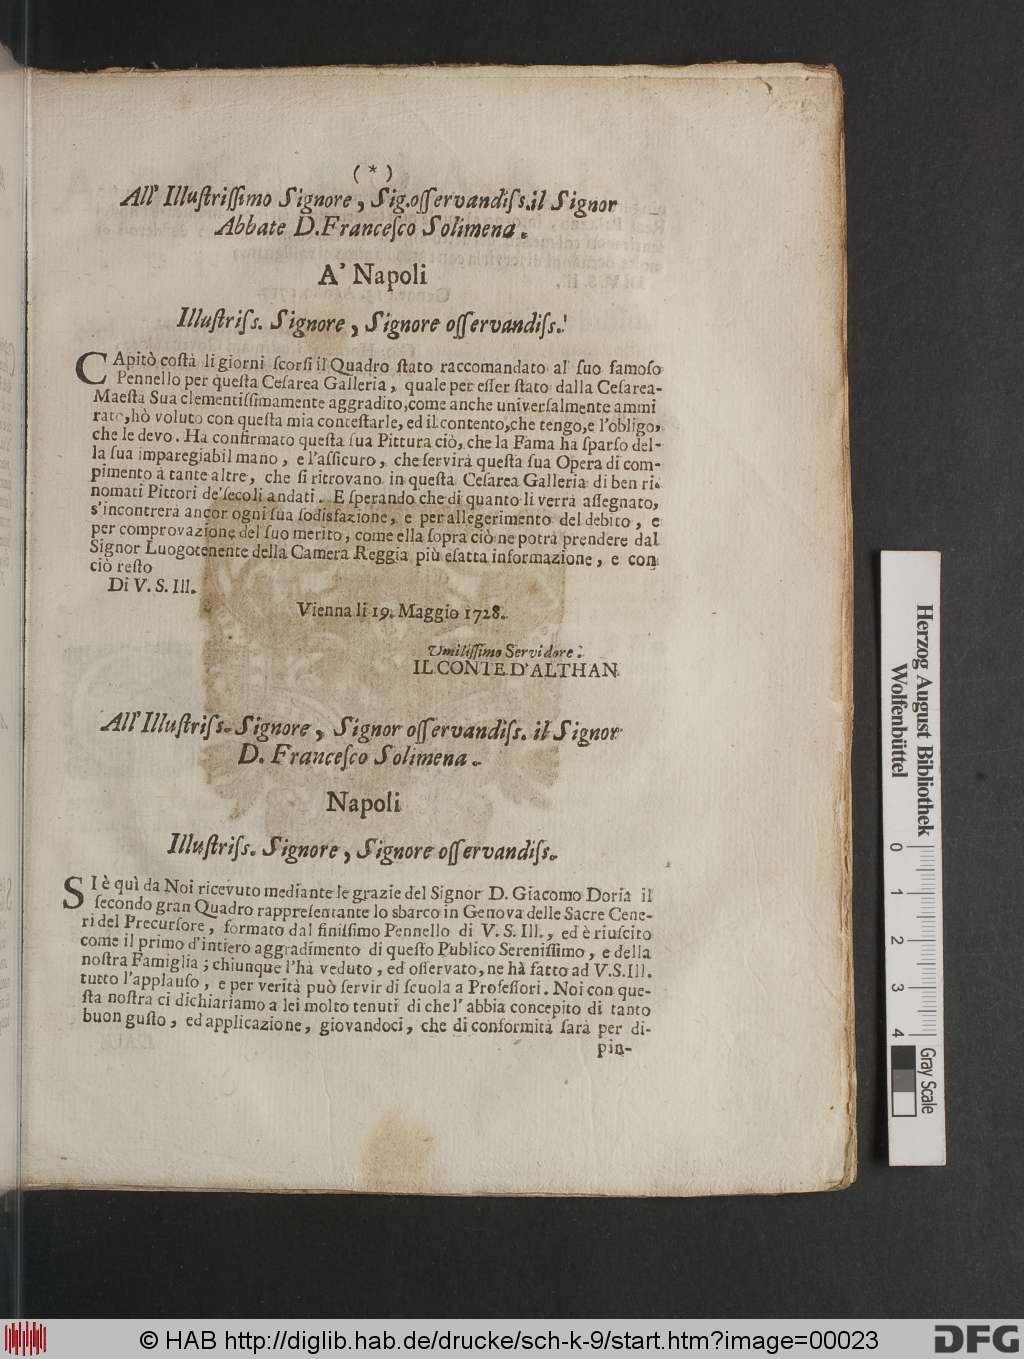 ( * )
All' Illuſtriſſimo Signore, Sig.oſſervandiſs.il Signor
Abbate D.Franceſco Solimena.
A' Napoli
Illuſtriſs. Signore, Signore oſſervandiſs.
CApitò coſtà li giorni ſcorſi il Quadro ſtato raccomandato al ſuo famoſo
Pennello per queſta Ceſarea Galleria, quale per eſſer ſtato dalla Ceſarea-
Maeſtà Sua clementiſſimamente aggradito,come anche univerſalmente ammi
rato,hò voluto con queſta mia conteſtarle, ed il contento,che tengo,e l'obligo,
che le devo. Ha confirmato queſta ſua Pittura ciò, che la Fama ha ſparſo del-
la ſua imparegiabil mano, e l'aſſicuro, che ſervirà queſta ſua Opera di com-
pimento à tante altre, che ſi ritrovano in queſta Ceſarea Galleria di ben ri-
nomati Pittori de'ſecoli andati. E ſperando che di quanto li verrà aſſegnato,
s'incontrerà ancor ogni ſua ſodisfazione, e per allegerimento del debito, e
per comprovazione del ſuo merito, come ella ſopra ciò ne potrà prendere dal
Signor Luogotenente della Camera Reggia più eſatta informazione, e con
ciò reſto
Di V. S. Ill.
Vienna li 19. Maggio 1728.
Umiliſſimo Servidore:
IL CONTE D'ALTHAN.
All'Illuſtriſs. Signore, Signor oſſervandiſs. il Signor
D. Franceſco Solimena.
Napoli
Illuſtriſs. Signore, Signore oſſervandiſs.
SI è quì da Noi ricevuto mediante le grazie del Signor D. Giacomo Doria il
ſecondo gran Quadro rappreſentante lo sbarco in Genova delle Sacre Cene-
ri del Precurſore, formato dal finiſſimo Pennello di V. S. Ill., ed è riuſcito
come il primo d'intiero aggradimento di queſto Publico Sereniſſimo, e della
noſtra Famiglia; chiunque l'hà veduto, ed oſſervato, ne hà fatto ad V.S.Ill.
tutto l'applauſo, e per verità può ſervir di ſcuola a Profeſſori. Noi con que-
ſta noſtra ci dichiariamo a lei molto tenuti di che l' abbia concepito di tanto
buon guſto, ed applicazione, giovandoci, che di conformità ſarà per di-
pin-
Herzog August Bibliothek
Wolfenbüttel
0 1 2 3 4
Gray Scale
© HAB http://diglib.hab.de/drucke/sch-k-9/start.htm?image=00023
DFG